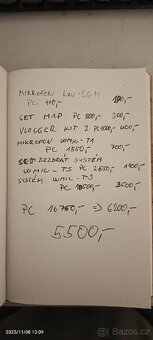 MIKROFONI LAV-S.G.M.
PC 490,- 100,-
SET MAP PC 800,- 200,-
VLOGGER KIT 2 PC 1000,- 400,-
MIKROFON WMIC-T1
PC 1550,- 700,-
BEZDRÁT SYSTÉM
WMIC-T5 PC 2650,- 1400,-
SYSTEM WMIC-T3
PC 3500,-
PC 16750,- => 6200,-
5500,-
2025/11/08 13:09
Bazoš.cz